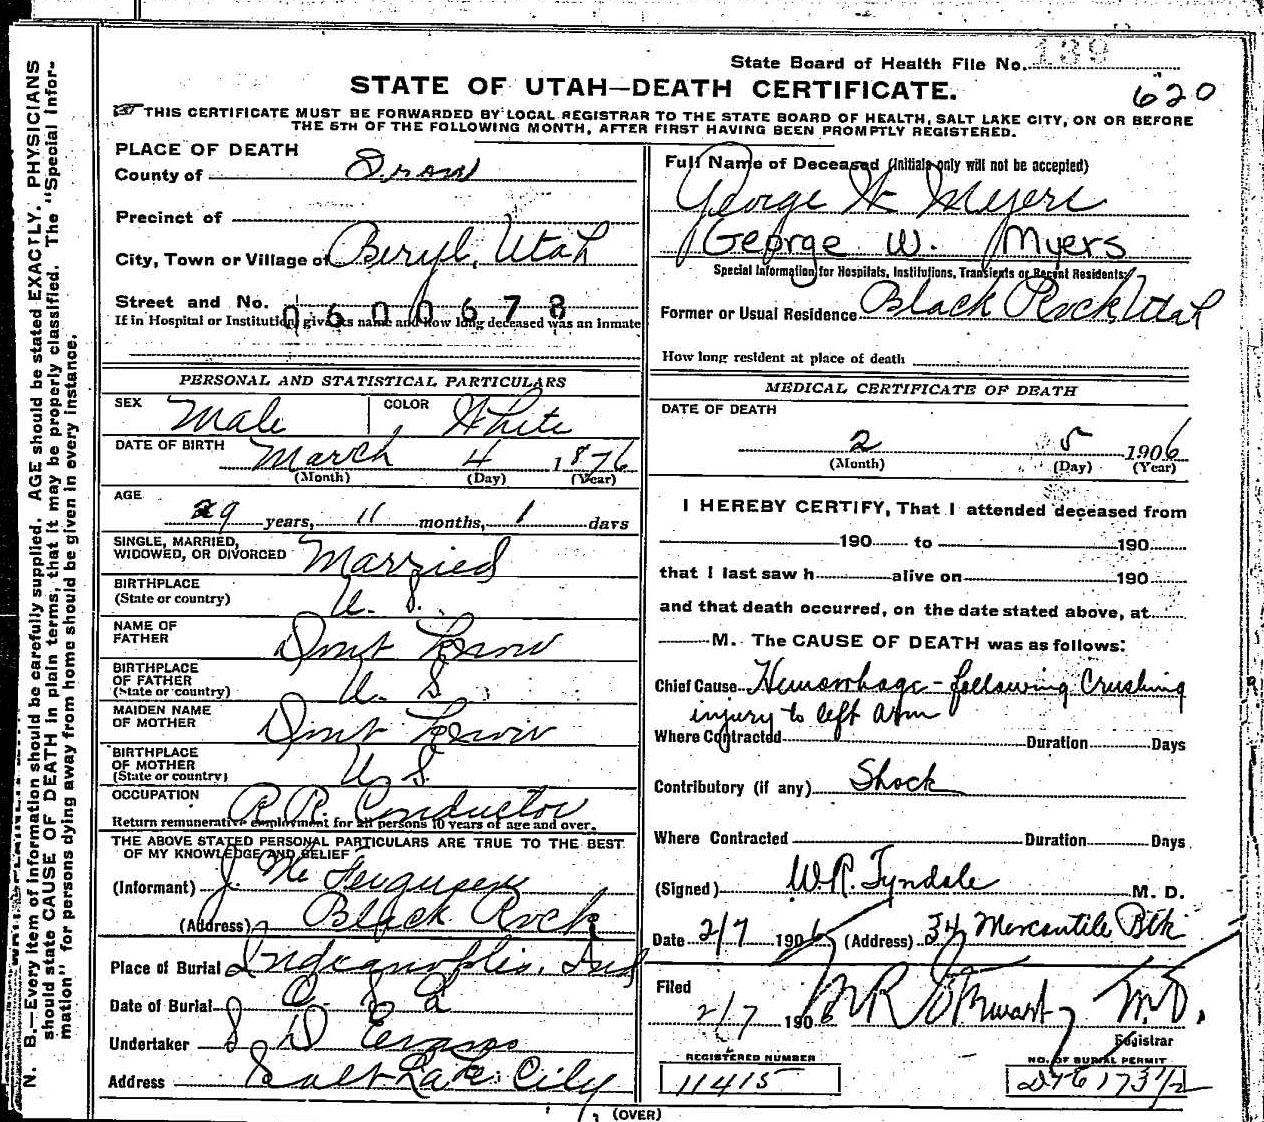 State Board of Health File No. 139
STATE OF UTAH—DEATH CERTIFICATE.
620
THIS CERTIFICATE MUST BE FORWARDED BY LOCAL REGISTRAR TO THE STATE BOARD OF HEALTH, SALT LAKE CITY, ON OR BEFORE
THE 5TH OF THE FOLLOWING MONTH, AFTER FIRST HAVING BEEN PROMPTLY REGISTERED.
N. B.—Every item of information should be carefully supplied. AGE should be stated EXACTLY. PHYSICIANS
should state CAUSE OF DEATH in plain terms, that it may be properly classified. The "Special Infor-
mation" for persons dying away from home should be given in every instance.
PLACE OF DEATH
County of Iron
Precinct of
City, Town or Village of Beryl, Utah
Street and No.
0600678
If in Hospital or Institution, give its name and how long deceased was an inmate
Full Name of Deceased (Initials only will not be accepted)
George W Myers
George W. Myers
Special Information for Hospitals, Institutions, Transients or Recent Residents:
Former or Usual Residence Black Rock, Utah
How long resident at place of death
PERSONAL AND STATISTICAL PARTICULARS
SEX Male COLOR White
DATE OF BIRTH March 4 1876
(Month) (Day) (Year)
AGE
29 years, 11 months, 1 days
SINGLE, MARRIED,
WIDOWED, OR DIVORCED Married
BIRTHPLACE
(State or country) U. S.
NAME OF
FATHER Dont Know
BIRTHPLACE
OF FATHER
(State or country) U. S.
MAIDEN NAME
OF MOTHER Dont Know
BIRTHPLACE
OF MOTHER
(State or country) U. S.
OCCUPATION R. R. Conductor
Return remunerative employment for all persons 10 years of age and over.
THE ABOVE STATED PERSONAL PARTICULARS ARE TRUE TO THE BEST
OF MY KNOWLEDGE AND BELIEF
(Informant) J. Mc Ferguson
(Address) Black Rock
Place of Burial Indianapolis, Ind
Date of Burial
Undertaker S D Evans
Address Salt Lake City
MEDICAL CERTIFICATE OF DEATH
DATE OF DEATH
2 5 1906
(Month) (Day) (Year)
I HEREBY CERTIFY, That I attended deceased from
190 to 190
that I last saw h alive on 190
and that death occurred, on the date stated above, at
M. The CAUSE OF DEATH was as follows:
Chief Cause Hemorrhage - following Crushing
injury to left arm
Where Contracted Duration Days
Contributory (if any) Shock
Where Contracted Duration Days
(Signed) W.R. Tyndale M. D.
Date 2/7 1906 (Address) 34 Mercantile Blk
Filed
2/7 1906 Stewart M.D.
Registrar
REGISTERED NUMBER
11415
NO. OF BURIAL PERMIT
(OVER)